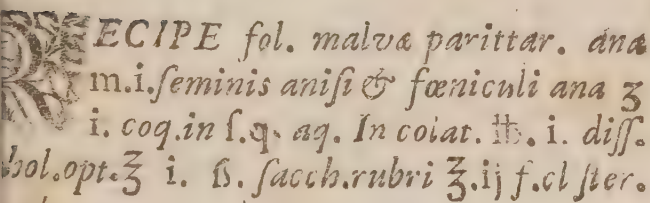 RECIPE fol. malvæ parittar. ana
m.i.ſeminis aniſi & fœniculi ana ʒ
i. coq.in ſ.q. aq. In coiat. ℔. i. diſſ.
hol.opt.℥ i. ß. ſacch.rubri ℥.ij f.clſter.